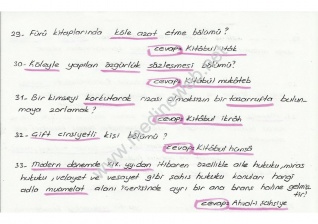 29- Fürû kitaplarında köle azat etme bölümü?
cevap: Kitâbul ıtâk
30- Köleyle yapılan özgürlük sözleşmesi bölümü?
cevap: Kitâbul mukâteb
31- Bir kimseyi korkutarak rızası olmaksızın bir tasarrufta bulun-
maya zorlamak?
cevap: Kitâbul ikrâh
32- Çift cinsiyetli kişi bölümü?
cevap: Kitâbul hünsâ
33- Modern dönemde xıx. yy.dan itibaren özellikle aile hukuku, miras
hukuku, velayet ve vesayet gibi şahıs hukuku konuları hangi
adla muamelat alanı içerisinde ayrı bir ana branş haline gelmiş
tir?
cevap: Ahval-i Şahsiye